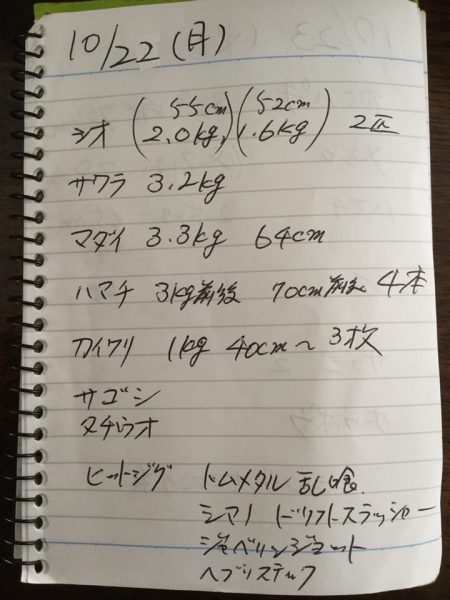 10/22(月)
シオ (55cm 2.0kg) (52cm 1.6kg) 2匹
サワラ 3.2kg
マダイ 3.3kg 64cm
ハマチ 3kg前後 70cm前後 4本
カイワリ 1kg 40cm〜 3枚
サゴシ
タチウオ
ヒットジグ トムメタル 乱喰
シマノ ドリフトスラッシャー
ジャベリンジェット
ヘブリスティック